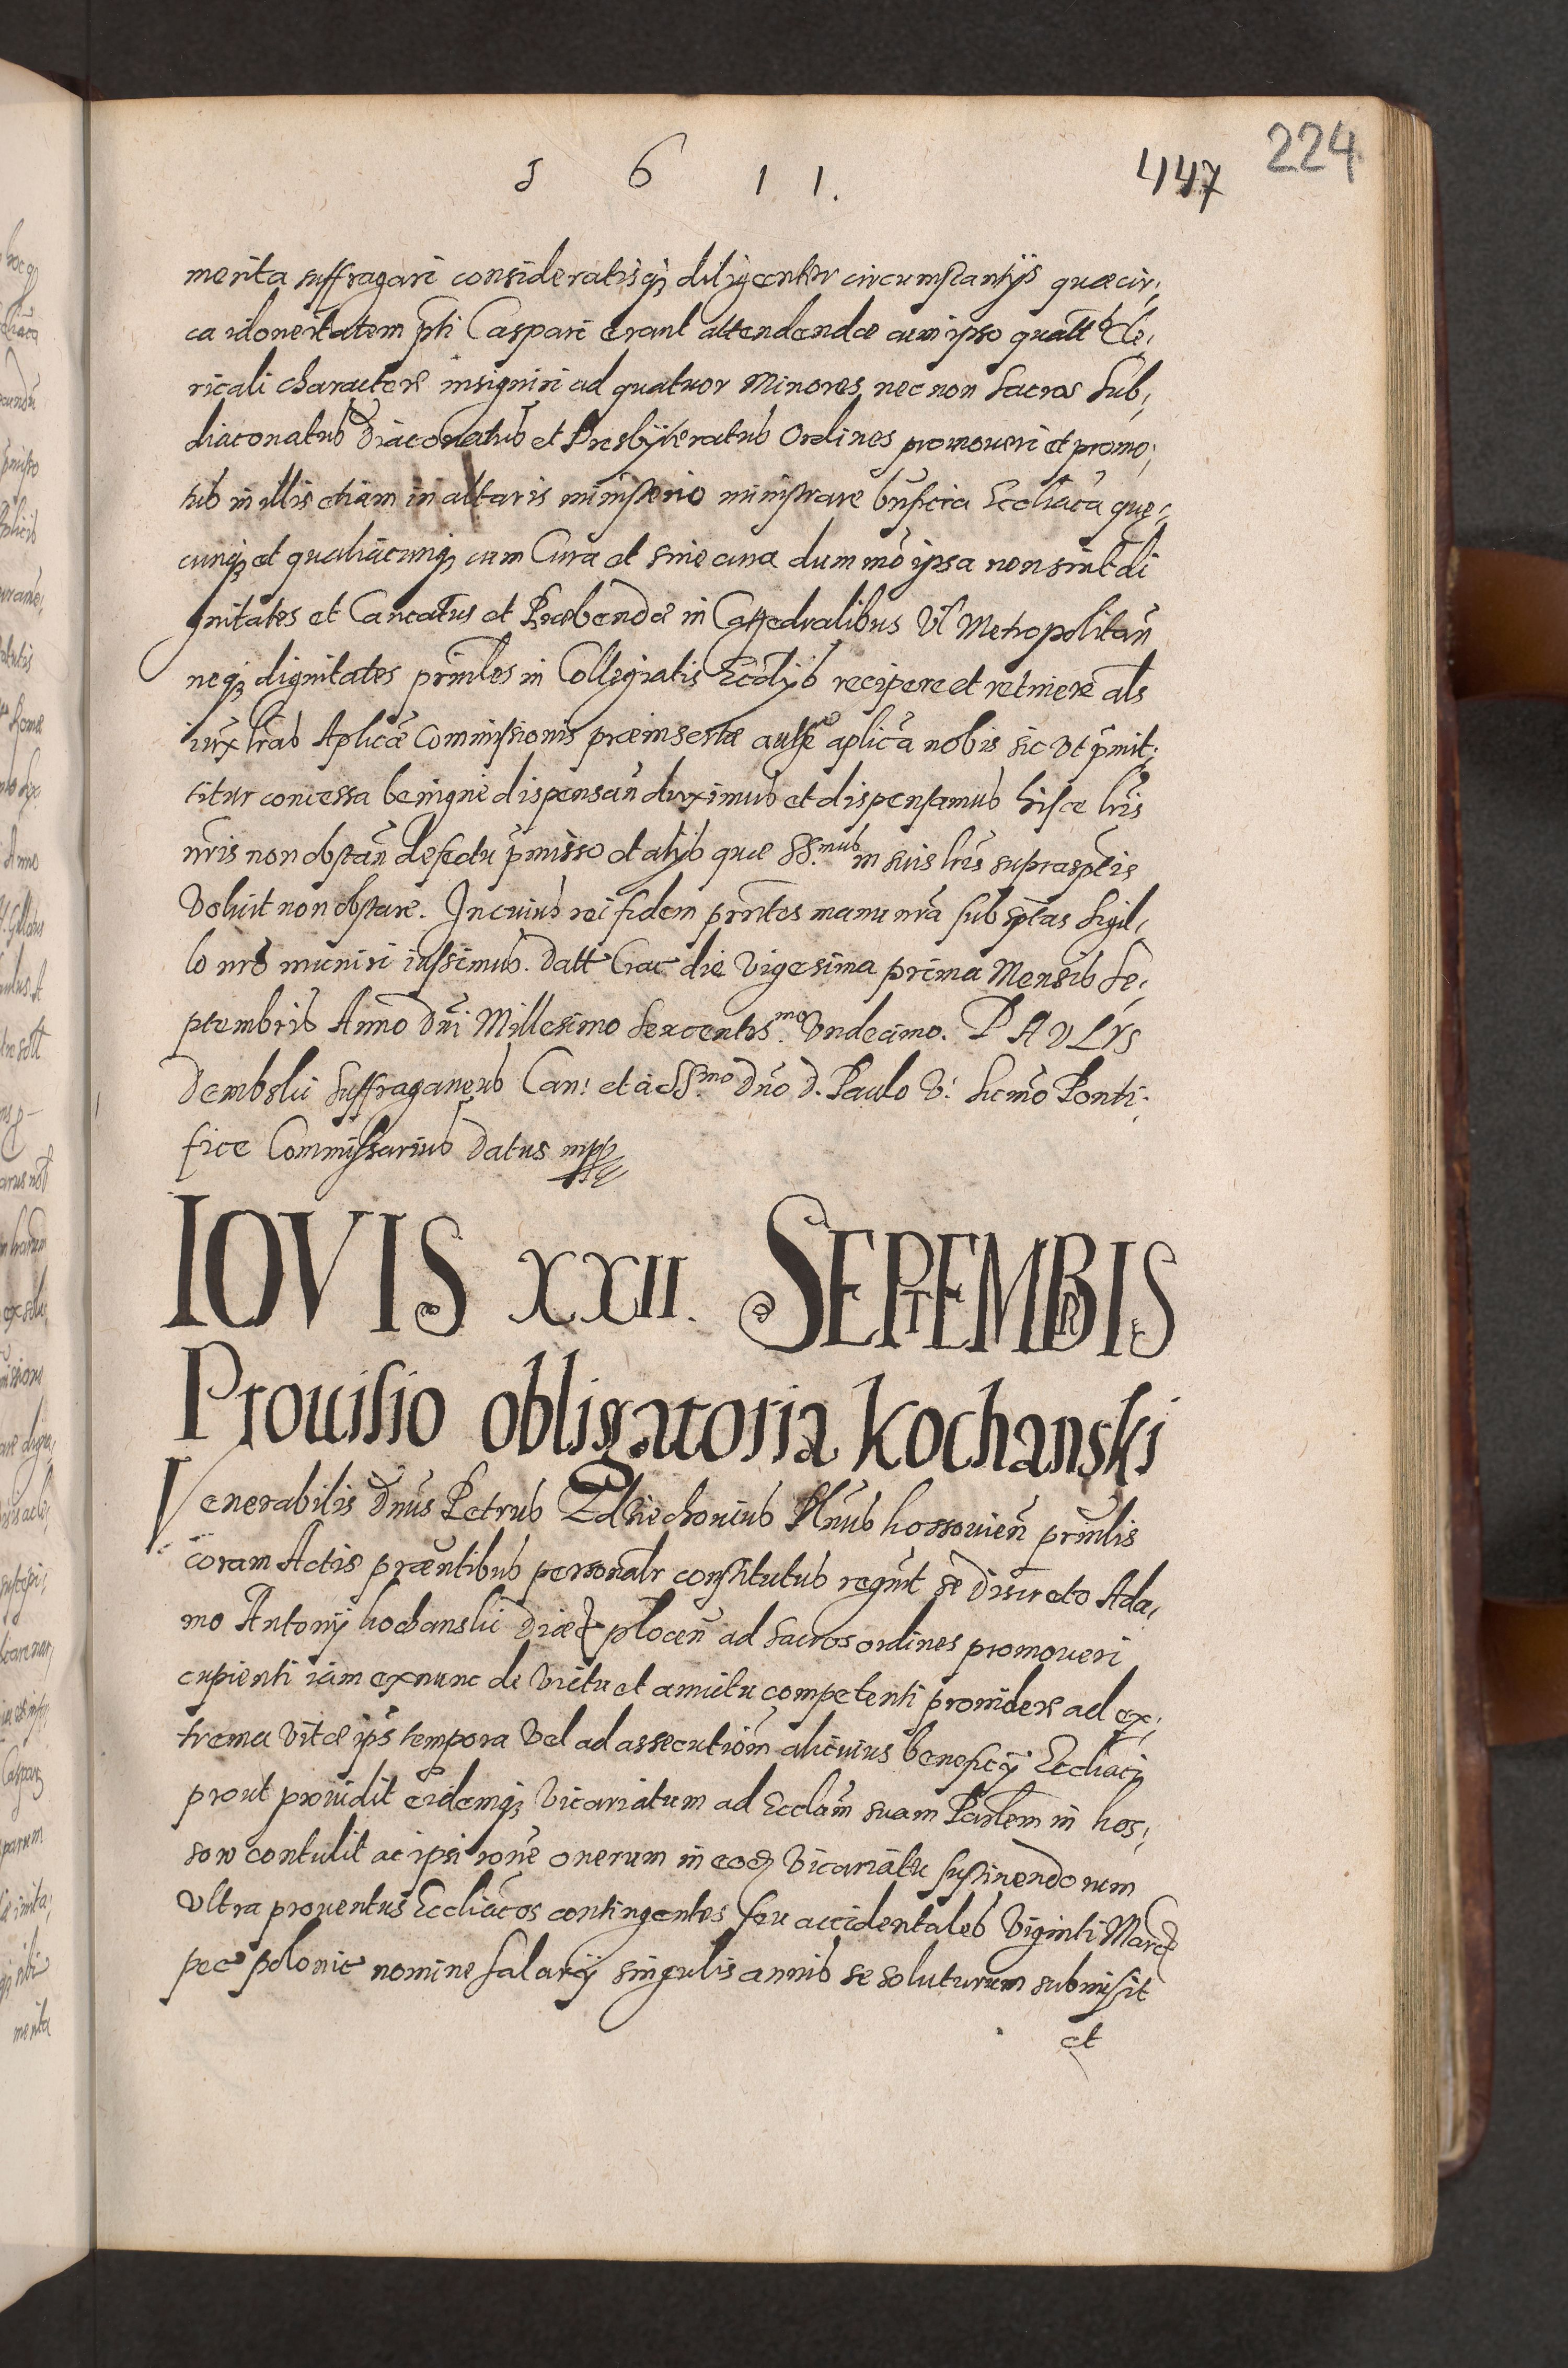 1 6 1 1.
447
224
merita suffragari consideratisq; diligenter circumstantijs quæ cir;
ca idoneitatem pti Caspari erant attendendæ cum ipso quatt Cle;
ricali charactere insigniri ad quatuor Minores nec non Sacros Sub;
diaconatus Diaconatus et Presbyteratus Ordines promoueri et promo;
tus in illis etiam in altaris ministerio ministrare bnficia Eccliaca quę;
cunq; et qualiacunq; cum Cura et sine cura dum mo ipsa non sint di
gnitates et Cancatus et Præbendæ in Cathedralibus Vl Metropolitan
neq; dignitates prinles in Collegiatis Eccl ijs recipere et retinere als
iux lras Aplicæ Commissionis præinsertæ authe aplica nobis sic Vt pmit;
titur concessa benigne dispensan duximus et dispensamus hisce lris
nris non obstan defectu pmisso et alijs quæ SS.mus in suis lris suprasptis
Voluit non obstare. In cuius rei fidem prntes manu nra sub sptas Sigil;
lo nro muniri iussimus. Datt Crac die Vigesima prima Mensis Se;
ptembris Anno Dni Millesimo Sexcentes.mo Vndecimo. PAVLVS
Dembski Suffraganeus Can: et à SS.mo Dno D. Paulo V: Sumo Ponti;
fice Commissarius Datus mpp
IOVIS XXII. SEPTEMBRIS
Prouisio obligatoria Kochanski
Venerabilis Dnus Petrus Plnus kossouien prinlis
coram Actis præntibus personalr constitutus regnt se discreto Ada;
mo Antonij kochanski Diæc plocen ad sacros ordines promoueri
cupienti iam ex nunc de Victu et amictu competenti prouidere ad ex;
trema Vitæ ips tempora Vel ad assecutiom alicuius beneficij Eccliaci
prout prouidit eidemq; Vicariatum ad Ecclam suam Parlem in kos;
sow contulit ac ipsi rone onerum in eod Vicariatu sustinendorum
Vltra prouentus Eccliacos contingentes seu accidentales Viginti Marc
pec polonic nomine salarij singulis annis se soluturum submisit
et